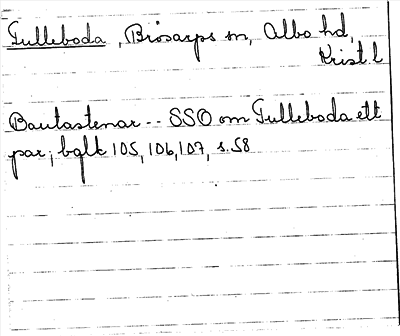 Gulleboda, Brösarps sn, Albo hd,
Krist. l
Bautastenar -- SSO om Gulleboda ett
par; bglt 105, 106, 107, s. 58